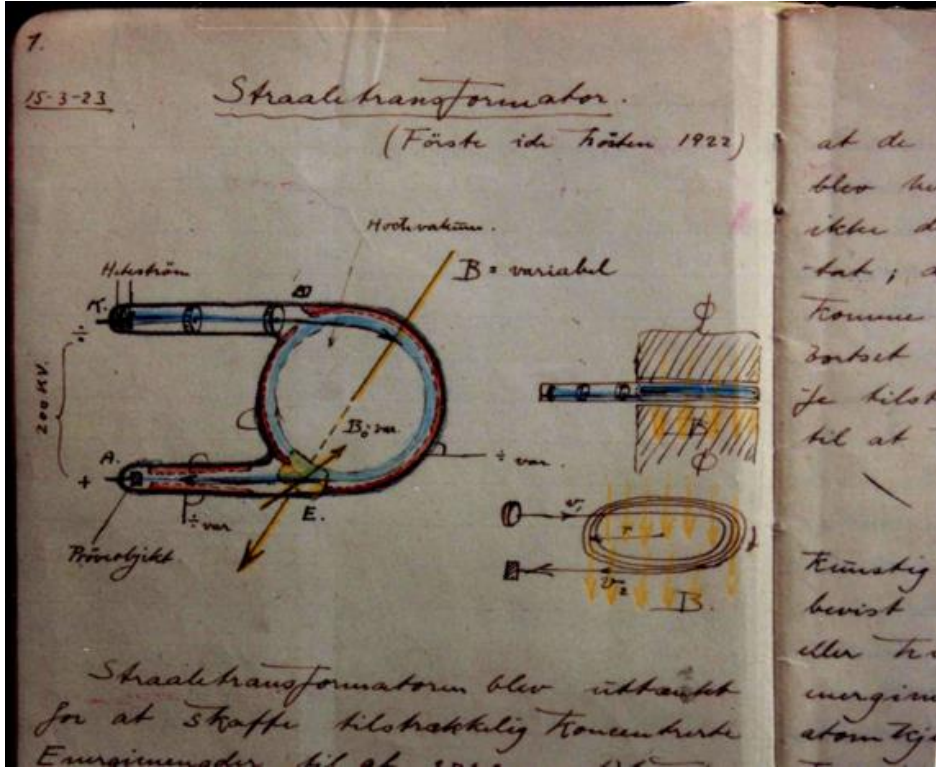 1.
15-3-23
Straaletransformator.
(Förste ide hösten 1922)
Hochvakuum.
B = variabel
K.
÷
200 KV.
A.
+
B ÷ var.
÷ var.
÷ var
E.
Pröveobjekt
B
v₁
r
v₂
B.
Straaletransformatoren blev uttænkt
for at skaffe tilstrækkelig koncentrerte
Energimengder til at
at de
blev
ikke
komme
bortset
til at
Kunstig
bevist
eller